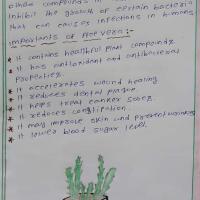 other compounds in
Inhibit the growth of certain bacteria
that can causes infections in humans
Importants of Aloevera :-
* It contains healthful plant compoundg
* It has antioxidant and antibacterial
properties.
* It accelerates wound healing
* It reduces dental plaque
* It helps treat canker sores
* It reduces constipation
* It may improve skin and prevent wrinkles
* It lower blood sugar level.